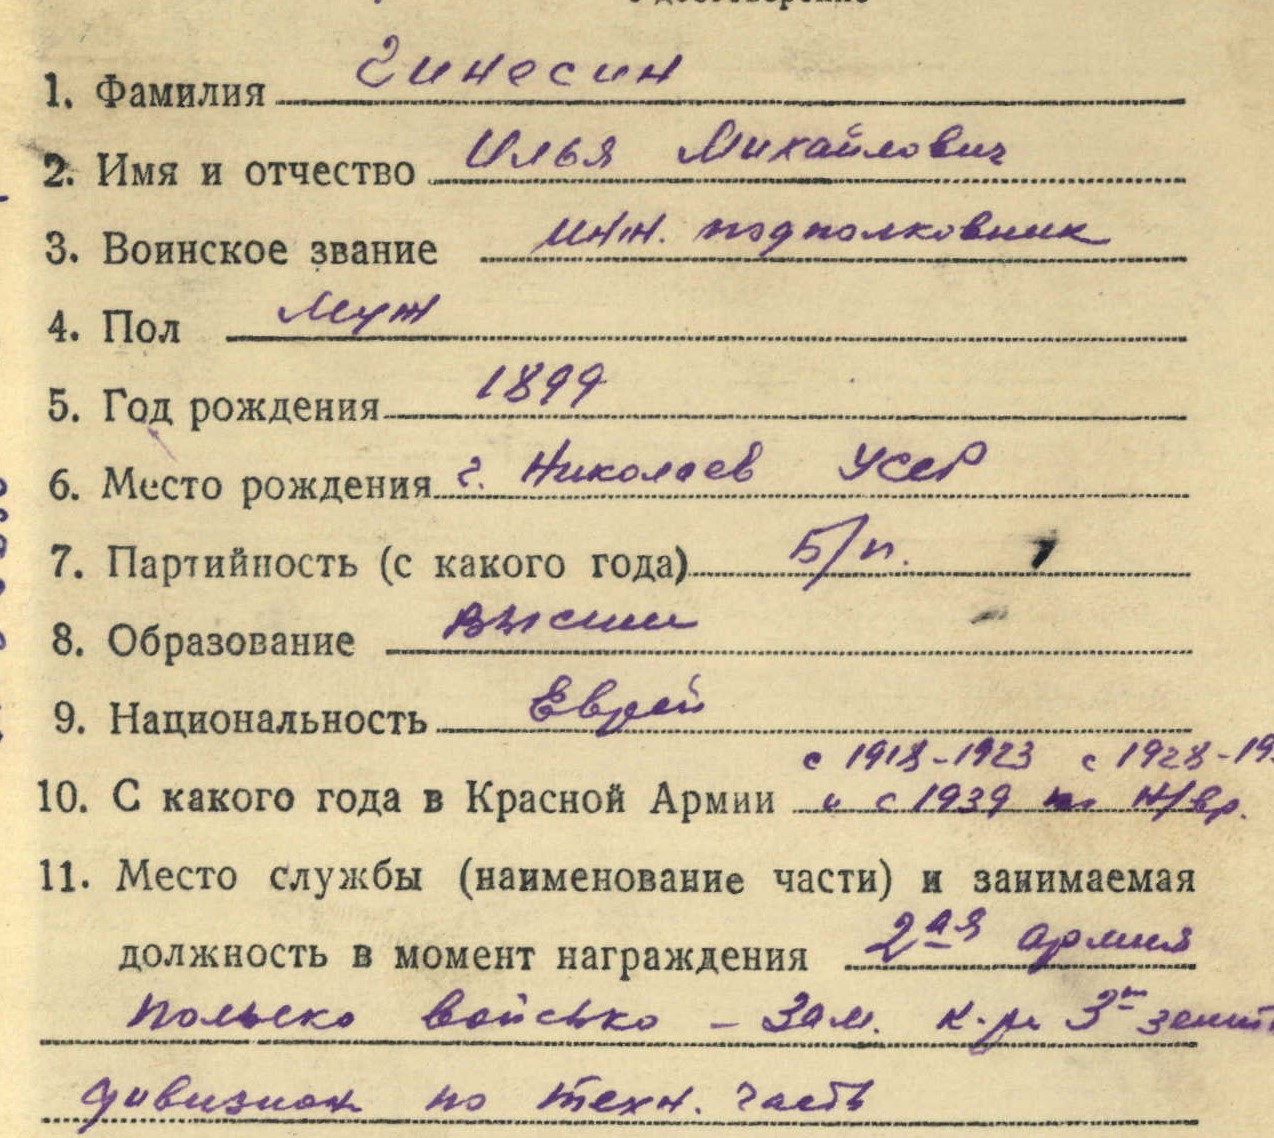 1. Фамилия Гинесин
2. Имя и отчество Илья Михайлович
3. Воинское звание инж. подполковник
4. Пол Муж
5. Год рождения 1899
6. Место рождения г. Николаев УССР
7. Партийность (с какого года) Б/п.
8. Образование высшее
9. Национальность Еврей
с 1918-1923 с 1928-19
10. С какого года в Красной Армии и с 1939 по Н/вр.
11. Место службы (наименование части) и занимаемая
должность в момент награждения 2ая армия
Польско войсько - Зам. к-ра 3й зенит
дивизион по техн. часть